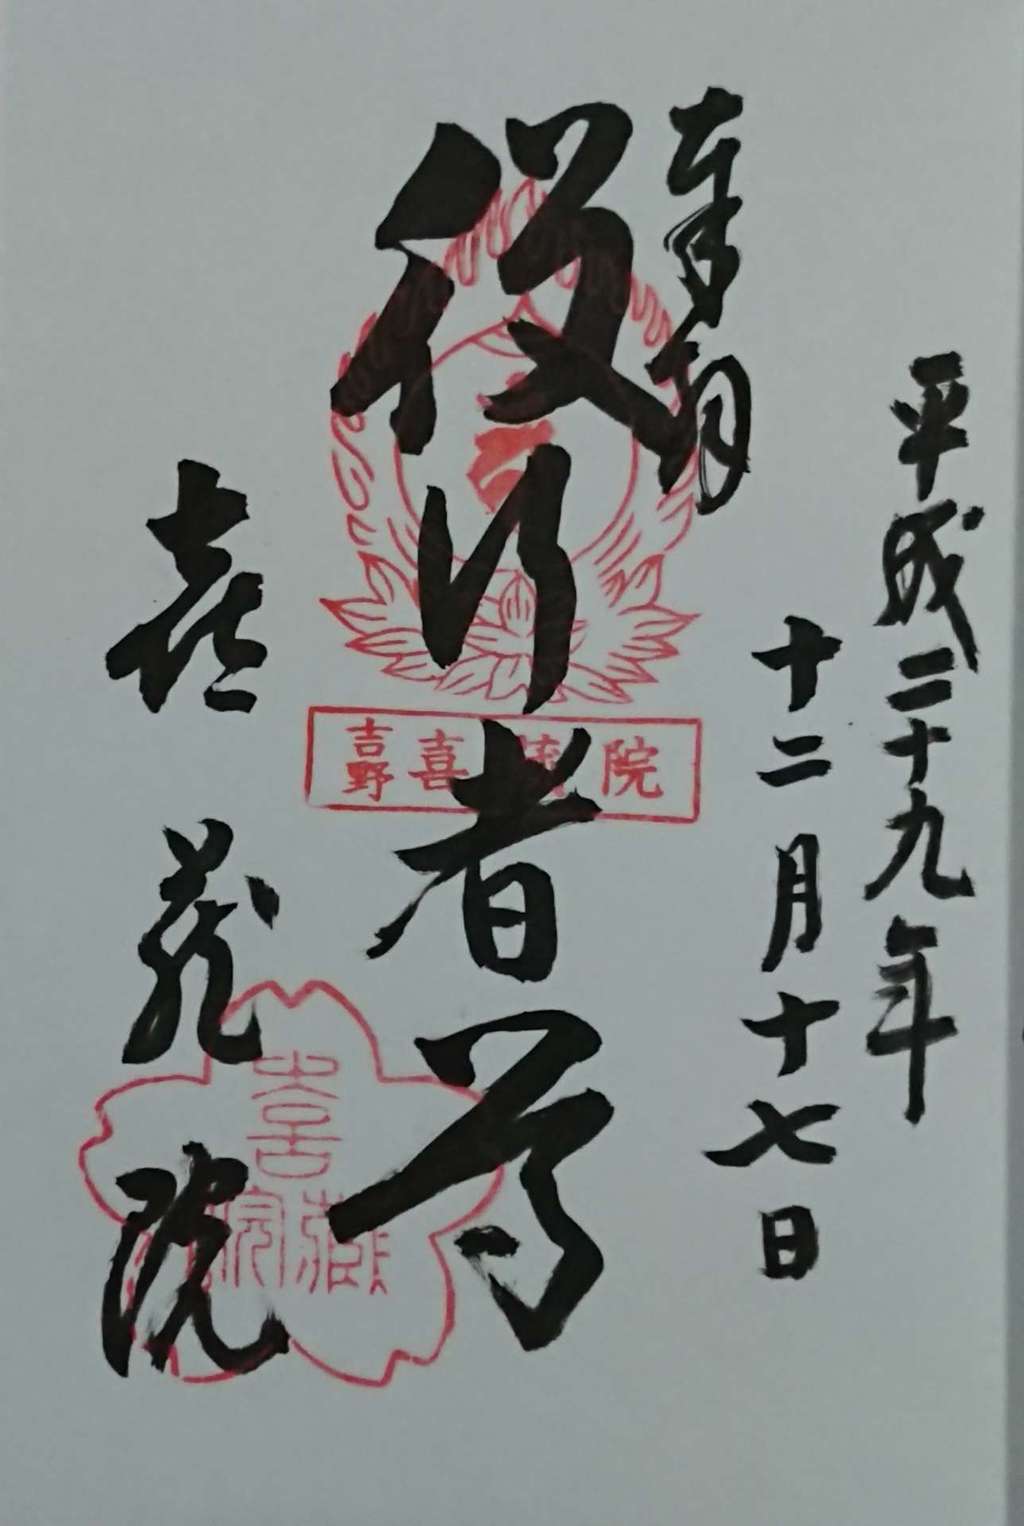 平成二十九年
十二月十七日
奉拝
役行者尊
喜蔵院
吉野喜蔵院
喜蔵院